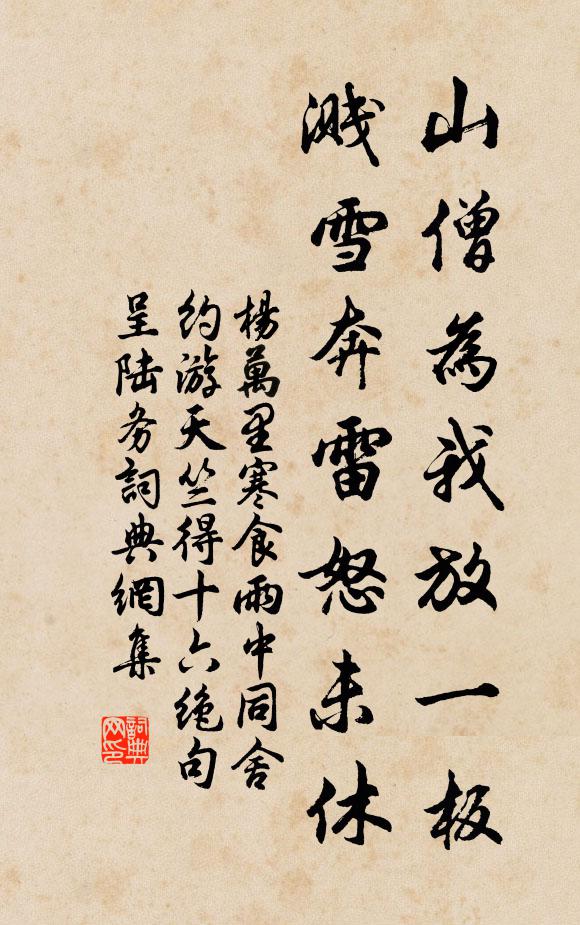 山僧為我放一板
濺雪奔雷怒未休
楊萬里寒食雨中同舍
約游天竺得十六绝句
呈陆务詞典網集
詞典网印